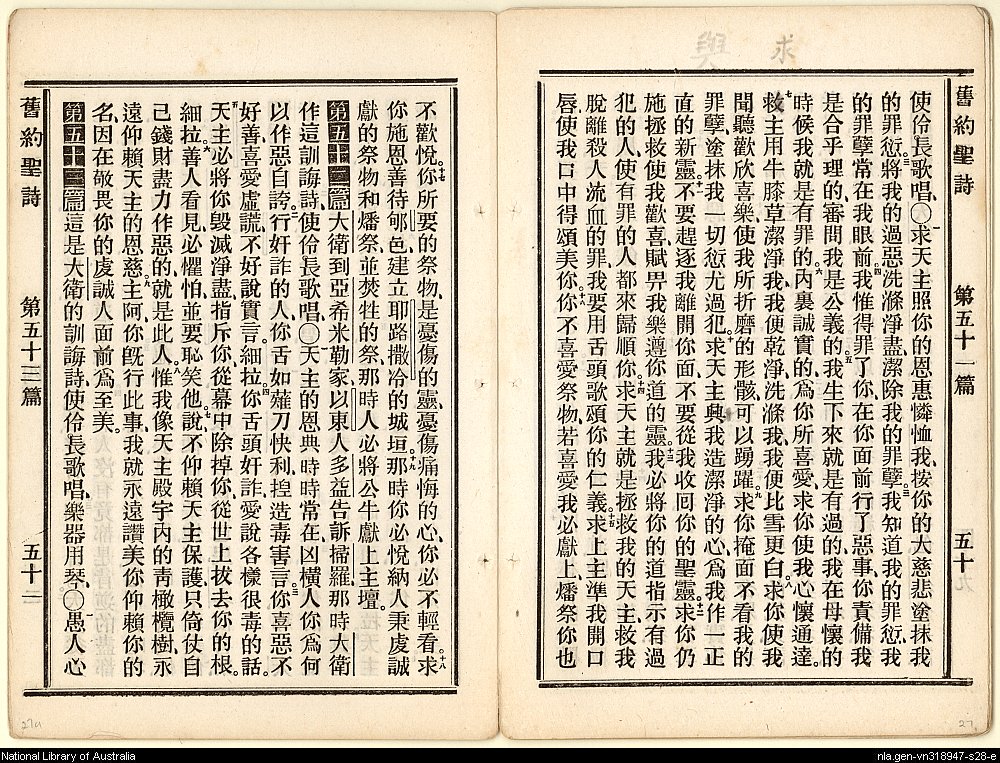 求
舊約聖詩 第五十一篇 五十九
使伶長歌唱、○求天主照你的恩惠憐恤我、按你的大慈悲塗抹我
的罪愆、將我的過惡洗滌淨盡、潔除我的罪孽、我知道我的罪愆、我
的罪孽常在我眼前、我惟得罪了你、在你面前行了惡事、你責備我
是合乎理的、審問我是公義的、我生下來就是有過的、我在母懷的
時候、我就是有罪的、內裏誠實的、爲你所喜愛、求你使我心懷通達、
救主用牛膝草潔淨我、我便乾淨、洗滌我、我便比雪更白、求你使我
聞聽歡欣喜樂、使我所折磨的形骸可以踴躍、求你掩面不看我的
罪孽、塗抹我一切愆尤過犯、求天主與我造潔淨的心、爲我作一正
直的新靈、不要趕逐我離開你面、不要從我收回你的聖靈、求你仍
施拯救使我歡喜、賦畀我樂遵你道的靈、我必將你的道指示有過
犯的人、使有罪的人都來歸順你、求天主就是拯救我的天主、救我
脫離殺人流血的罪、我要用舌頭歌頌你的仁義、求上主準我開口
唇、使我口中得頌美你、你不喜愛祭物、若喜愛我必獻上、燔祭你也
不歡悅、你所要的祭物、是憂傷的靈、憂傷痛悔的心、你必不輕看、求
你施恩善待郇邑、建立耶路撒冷的城垣、那時你必悅納人秉虔誠
獻的祭物、和燔祭、並焚牲的祭、那時人必將公牛獻上主壇。
第五十二篇 大衛到亞希米勒家、以東人多益告訴掃羅、那時大衛
作這訓誨詩、使伶長歌唱、○天主的恩典時時常在、凶橫人你爲何
以作惡自誇、行奸詐的人、你舌如薙刀快利、揑造毒害言、你喜惡不
好善、喜愛虛謊、不好說實言、細拉、你舌頭奸詐、愛說各樣很毒的話。
天主必將你毀滅淨盡、指斥你從幕中除掉你、從世上拔去你的根、
細拉、善人看見必懼怕、並要恥笑他、說、不仰賴天主保護、只倚仗自
己錢財、盡力作惡的、就是此人、惟我像天主殿宇內的靑橄欖樹、永
遠仰賴天主的恩慈、主阿、你旣行此事、我就永遠讚美你、仰賴你的
名、因在敬畏你的虔誠人面前、爲至美。
第五十三篇 這是大衛的訓誨詩、使伶長歌唱、樂器用琴、○愚人心
舊約聖詩 第五十三篇 五十二
27a
27
National Library of Australia
nla.gen-vn318947-s28-e